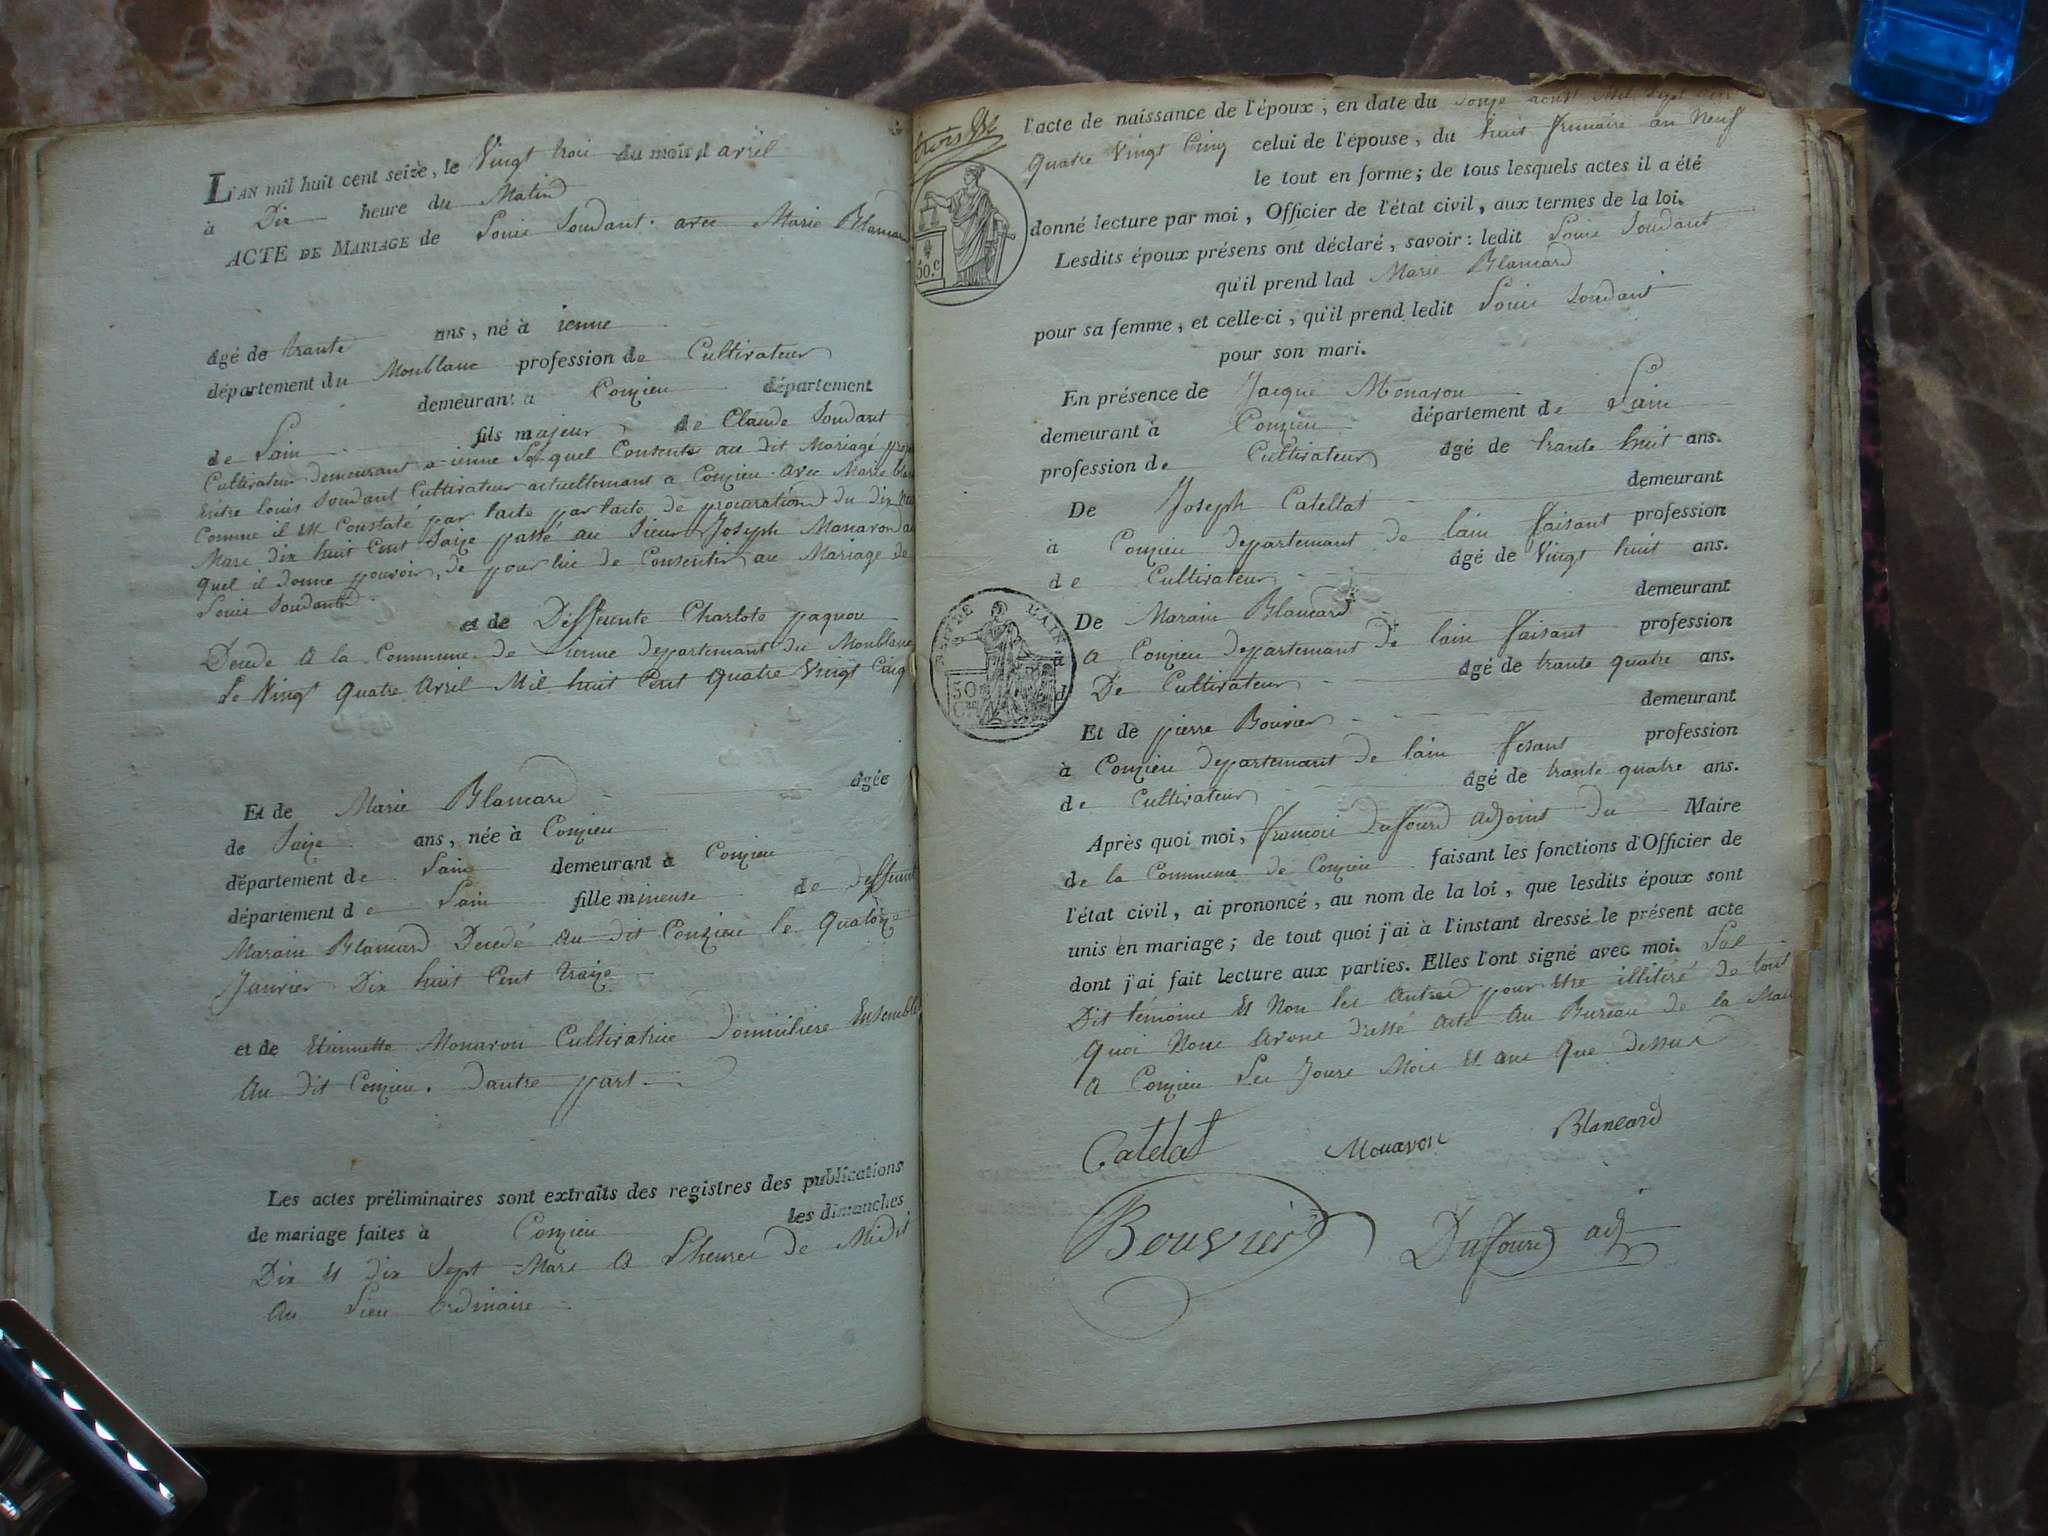 L'AN mil huit cent seize, le Vingt trois du mois d avril
à Dix heure du Matin
ACTE DE MARIAGE de Louis Soudant avec Marie Blancard
agé de trante ans, né à ienne
département du Monblanc profession de Cultivateur
demeurant a Conzieu département
de Lain fils majeur de Claude Soudant
Cultivateur demeurant a ienne Lequel Consents au dit Mariagé
Entre louis Soudant Cultivateur actuellemant a Conzieu avec Marie
Comme il est Constaté par lacte par lacte de procuration du dix
Mars dix huit Cent Saize passé au Sieur Joseph Monavon au
quel il donne pouvoir, de pour lui de Consentir au Mariage de
Louis Soudant
et de Deffeunte Charlote paquou
Decede a la Commune de ienne departemant du Monblanc
Le Vingt quatre Avril Mil huit Cent Quatre Vingt Cinq
Et de Marie Blancard agée
de Saize ans, née à Conzieu
département de Lain demeurant à Conzieu
département de Lain fille mineuse de deffeunt
Marain Blancard Decedé au dit Conzieu le Quatorze
Janvier Dix huit Cent traize
et de Etiennette Monavon Cultivatrice Domiciliere Ensemble
Au dit Conzieu. Dautre part
Les actes préliminaires sont extraits des registres des publications
de mariage faites à Conzieu les dimanches
Dix et dix Sept Mars a Lheure de Midi
Au Lieu Ordinaire
l'acte de naissance de l'époux, en date du onze aoust Mil Sept Cent
Quatre Vingt Cinq celui de l'épouse, du huit frimaire an Neuf
le tout en forme; de tous lesquels actes il a été
donné lecture par moi, Officier de l'état civil, aux termes de la loi.
Lesdits époux présens ont déclaré, savoir: ledit Louis Soudant
qu'il prend lad Marie Blancard
pour sa femme, et celle-ci, qu'il prend ledit Louis Soudant
pour son mari.
50.c
En présence de Jacque Monavon
demeurant à Conzieu département de Lain
profession de Cultivateur agé de trante huit ans.
De Joseph Catellat demeurant
à Conzieu departemant de lain faisant profession
de Cultivateur agé de Vingt huit ans.
De Marain Blancard demeurant
à a Conzieu departemant de lain faisant profession
d De Cultivateur agé de trante quatre ans.
L'AIN
50
Et de pierre Bouvier demeurant
à Conzieu departemant de lain fesant profession
de Cultivateur agé de trante quatre ans.
Après quoi moi, francois Dufourd adjoint du Maire
de la Commune de Conzieu faisant les fonctions d'Officier de
l'état civil, ai prononcé, au nom de la loi, que lesdits époux sont
unis en mariage; de tout quoi j'ai à l'instant dressé le présent acte
dont j'ai fait lecture aux parties. Elles l'ont signé avec moi. Les
Dit témoins Et Non les Autres pour Etre illitéré de tout
Quoi Nous avons dressé acte Au Bureau de la
A Conzieu Les Jours Mois et ans que dessus
Catelat Monavon Blancard
Bouvier Dufourd adj